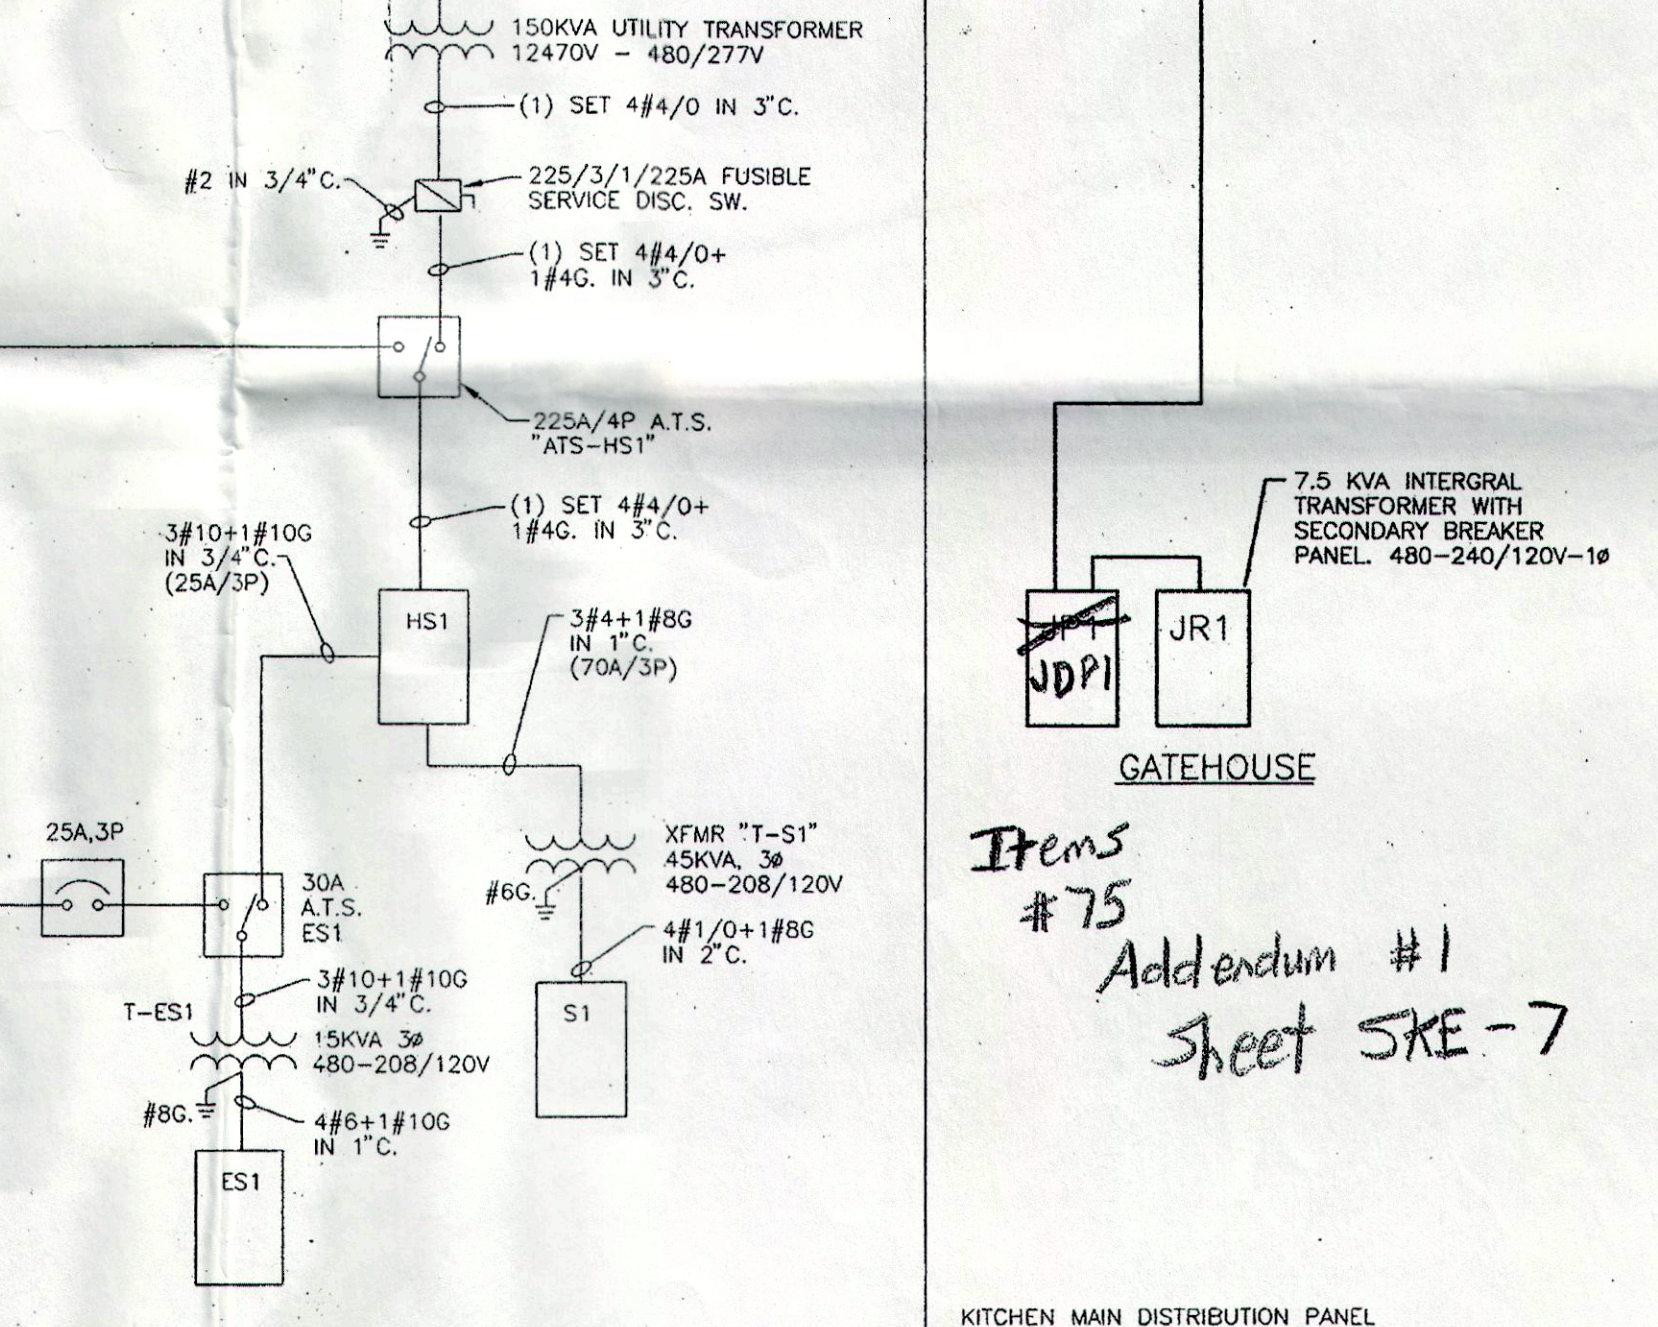 150KVA UTILITY TRANSFORMER
12470V - 480/277V
(1) SET 4#4/0 IN 3"C.
#2 IN 3/4"C.
225/3/1/225A FUSIBLE
SERVICE DISC. SW.
(1) SET 4#4/0+
1#4G. IN 3"C.
225A/4P A.T.S.
"ATS-HS1"
(1) SET 4#4/0+
1#4G. IN 3"C.
3#10+1#10G
IN 3/4"C.
(25A/3P)
HS1
3#4+1#8G
IN 1"C.
(70A/3P)
25A,3P
30A
A.T.S.
ES1
XFMR "T-S1"
45KVA, 3ø
480-208/120V
#6G.
4#1/0+1#8G
IN 2"C.
S1
3#10+1#10G
IN 3/4"C.
T-ES1
15KVA 3ø
480-208/120V
#8G.
4#6+1#10G
IN 1"C.
ES1
7.5 KVA INTERGRAL
TRANSFORMER WITH
SECONDARY BREAKER
PANEL. 480-240/120V-1ø
JP1
JDP1
JR1
GATEHOUSE
Items
#75
Addendum #1
Sheet SKE-7
KITCHEN MAIN DISTRIBUTION PANEL